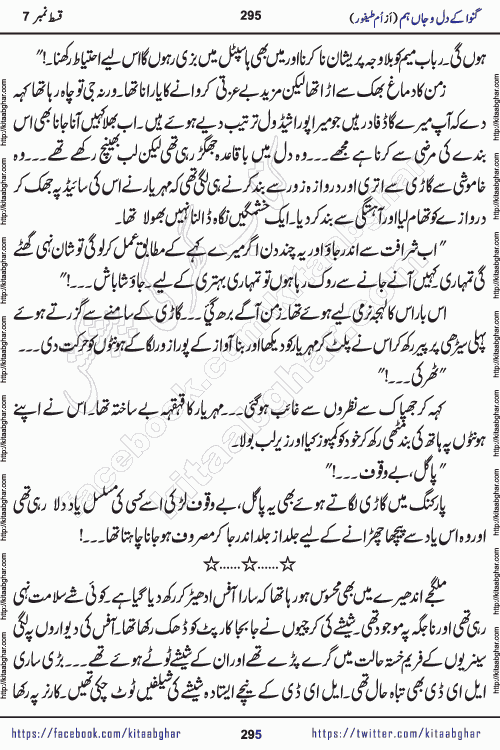 گنوا کے دل و جاں ہم (از اُم طیفور)
295
قسط نمبر 7
ہوں گی۔ رباب میم کو بلا وجہ پریشان نا کرنا اور میں بھی ہاسپٹل میں بزی رہوں گا اس لیے احتیاط رکھنا۔"
زمن کا دماغ بھک سے اڑا تھا لیکن مزید بے عزتی کروانے کا یارا نا تھا۔ ورنہ جی تو چاہ رہا تھا کہہ
دے کہ آپ میرے گاڈ فادر ہیں جو میرا پورا شیڈول ترتیب دیے ہوئے ہیں۔ اب بھلا کہیں آنا جانا بھی اس
بندے کی مرضی سے کرنا ہے مجھے۔۔۔ وہ دل میں باقاعدہ جھگڑ رہی تھی لیکن لب بھینچ رکھے تھے۔۔۔ وہ
خاموشی سے گاڑی سے اتری اور دروازہ زور سے بند کرنے ہی لگی تھی کہ مہریار نے اس کی سائیڈ پہ جھک کر
دروازے کو تھام لیا اور آہستگی سے بند کر دیا۔ ایک خشمگیں نگاہ ڈالنا نہیں بھولا تھا۔
"اب شرافت سے اندر جاؤ اور یہ چند دن اگر میرے کہے کے مطابق عمل کر لو گی تو شان نہی گھٹے
گی تمہاری کہیں آنے جانے سے روک رہا ہوں تو تمہاری بہتری کے لیے۔ جاؤ شاباش۔۔۔!"
اس بار اس کا لہجہ نرمی لیے ہوئے تھا۔ زمن آگے بڑھ گئی۔۔۔ گاڑی کے سامنے سے گزرتے ہوئے
پہلی سیڑھی پر پیر رکھ کر اس نے پلٹ کر مہریار کو دیکھا اور بنا آواز کے پورا زور لگا کے ہونٹوں کو حرکت دی۔۔۔
"ٹھرکی۔۔۔!"
کہہ کر جھپاک سے نظروں سے غائب ہو گئی۔۔۔ مہریار کا قہقہہ بے ساختہ تھا۔ اس نے اپنے
ہونٹوں پہ ہاتھ کی بند مٹھی رکھ کر خود کو کمپوز کیا اور زیر لب بولا۔
"پاگل، بے وقوف۔۔۔!"
پارکنگ میں گاڑی لگاتے ہوئے بھی یہ پاگل، بے وقوف لڑکی اسے کسی کی مسلسل یاد دلا رہی تھی
اور وہ اس یاد سے پیچھا چھڑانے کے لیے جلد از جلد اندر جا کر مصروف ہو جانا چاہتا تھا۔۔۔!
☆......☆......☆
ملگجے اندھیرے میں بھی محسوس ہو رہا تھا کہ سارا آفس ادھیڑ کر رکھ دیا گیا ہے۔ کوئی شے سلامت نہی
رہی تھی اور نا جگہ پہ موجود تھی۔ شیشے کی کرچیوں نے جا بجا کارپٹ کو ڈھک رکھا تھا۔ آفس کی دیواروں پہ لگی
سینریوں کے فریم خستہ حالت میں گرے پڑے تھے اور ان کے شیشے ٹوٹے ہوئے تھے۔۔۔ بڑی ساری
ایل ای ڈی بھی تباہ حال تھی۔ ایل ای ڈی کے نیچے ایستادہ شیشے کی شیلفیں ٹوٹ چکی تھیں۔ کارنر پہ رکھا
https://facebook.com/kitaabghar
295
https://twitter.com/kitaabghar
http://kitaabghar.com
facebook.com/kitaabghar
kitaabghar.com